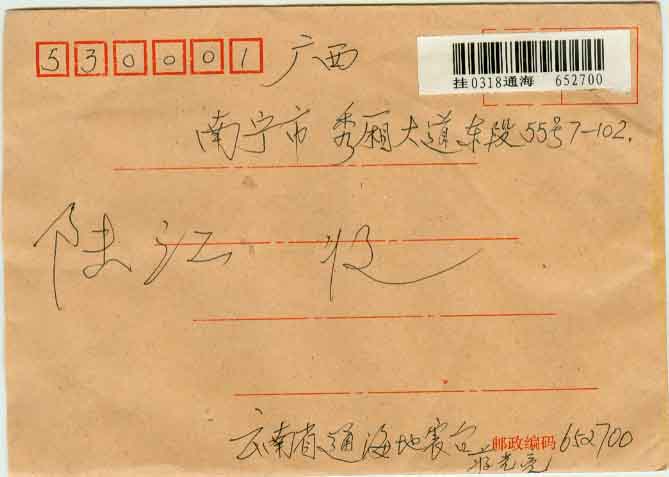 530001 广西
挂0318通海 652700
南宁市秀厢大道东段55号7-102.
陆江 收
云南省通海地震台 邮政编码 652700